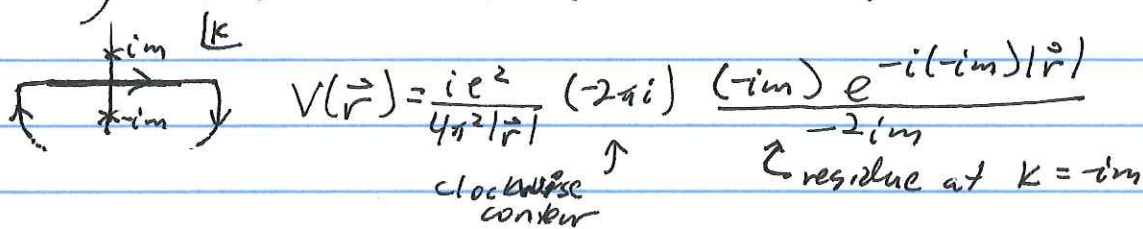 im [k
-im
V(r⃗) = ie²/4π²|r⃗| (-2πi) (-im) e^{-i(-im)|r⃗|}/-2im
↑ clockwise contour
↑ residue at k = -im